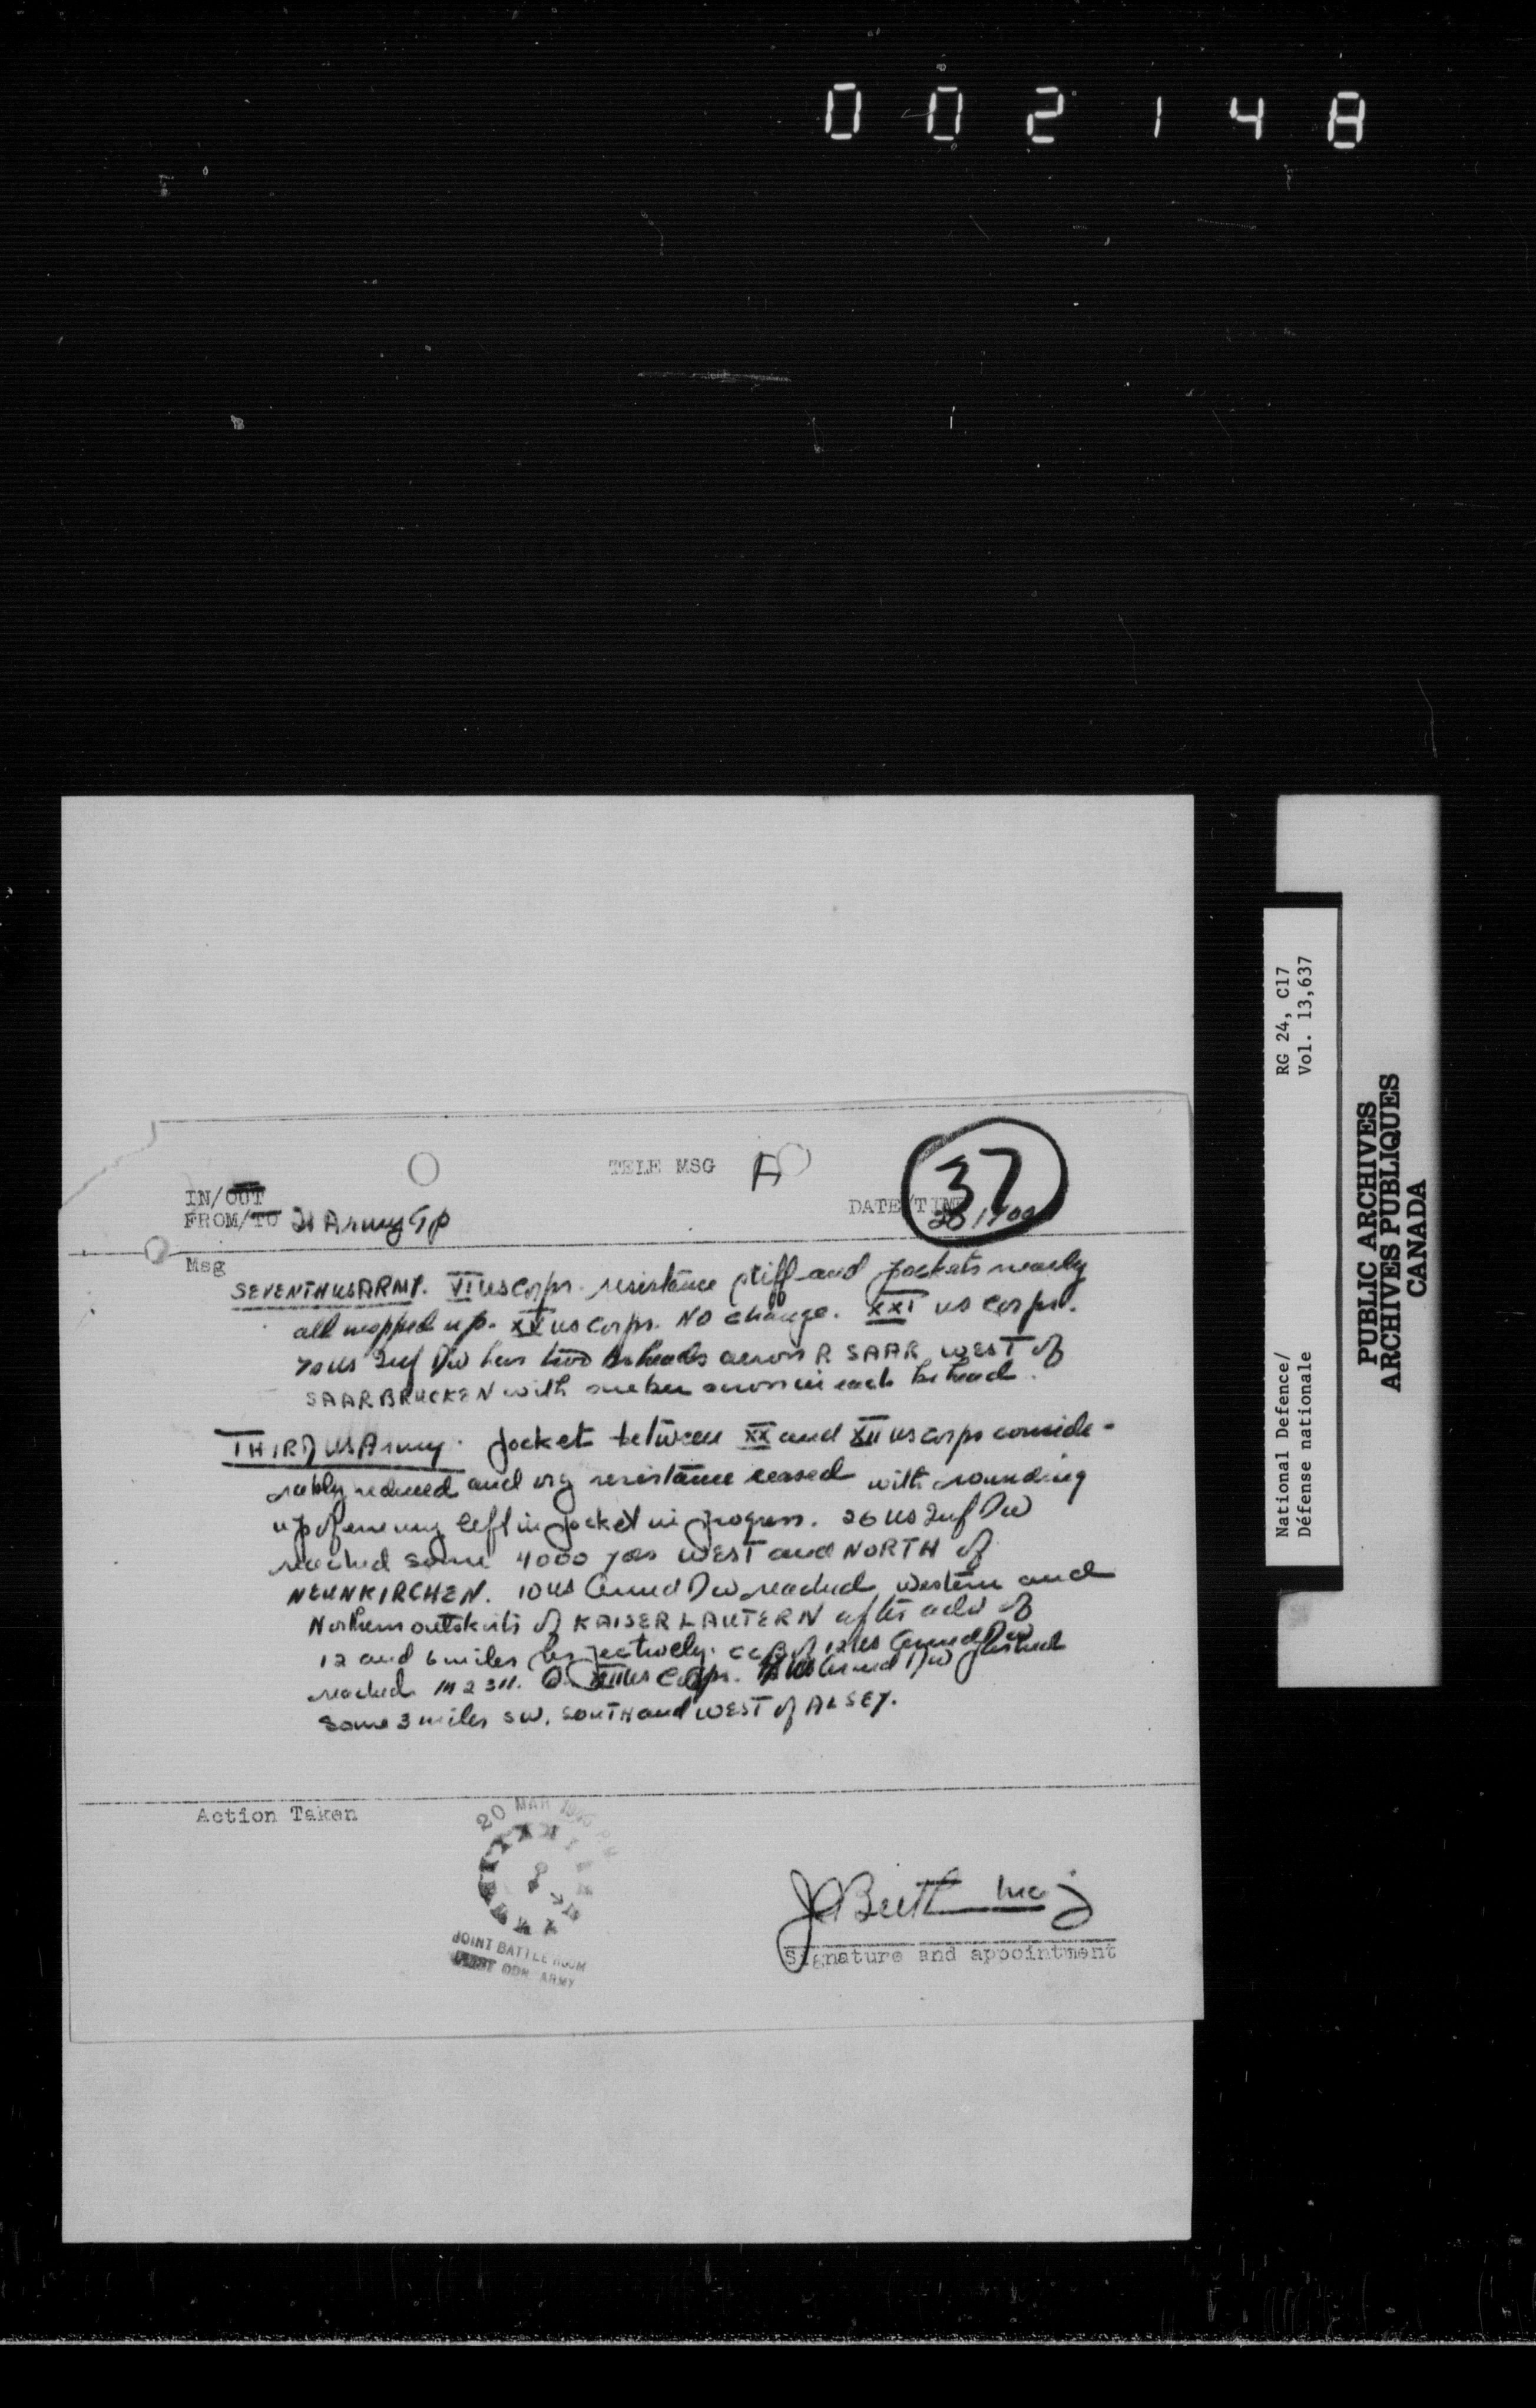 002148
TELE MSG A
37
IN/OUT
FROM/TO 21 Army Gp
DATE/TIME
Msg
SEVENTH US ARMY. VI US Corps. resistance stiff and pockets nearly
all mopped up. XV US Corps. NO change. XXI US Corps.
70 US Inf Div has two brheads across R SAAR WEST of
SAARBRUCKEN with across in each brhead.
THIRD US Army. Pocket between XX and XII US Corps conside-
rably reduced and org resistance ceased with rounding
up of enemy left in pocket in progress. 26 US Inf Div
reached some 4000 yds WEST and NORTH of
NEUNKIRCHEN. 10 US Armd Div reached Western and
Northern outskirts of KAISERLAUTERN after adv of
12 and 6 miles respectively. CCB of 12 US Armd Div
reached M 2311. XII US Corps. US Armd Div
some 3 miles SW, SOUTH and WEST of ALSEY.
Action Taken
20 MAR
JOINT BATTLE ROOM
FIRST CDN ARMY
Maj
Signature and appointment
RG 24, C17
Vol. 13,637
National Defence/
Défense nationale
PUBLIC ARCHIVES
ARCHIVES PUBLIQUES
CANADA